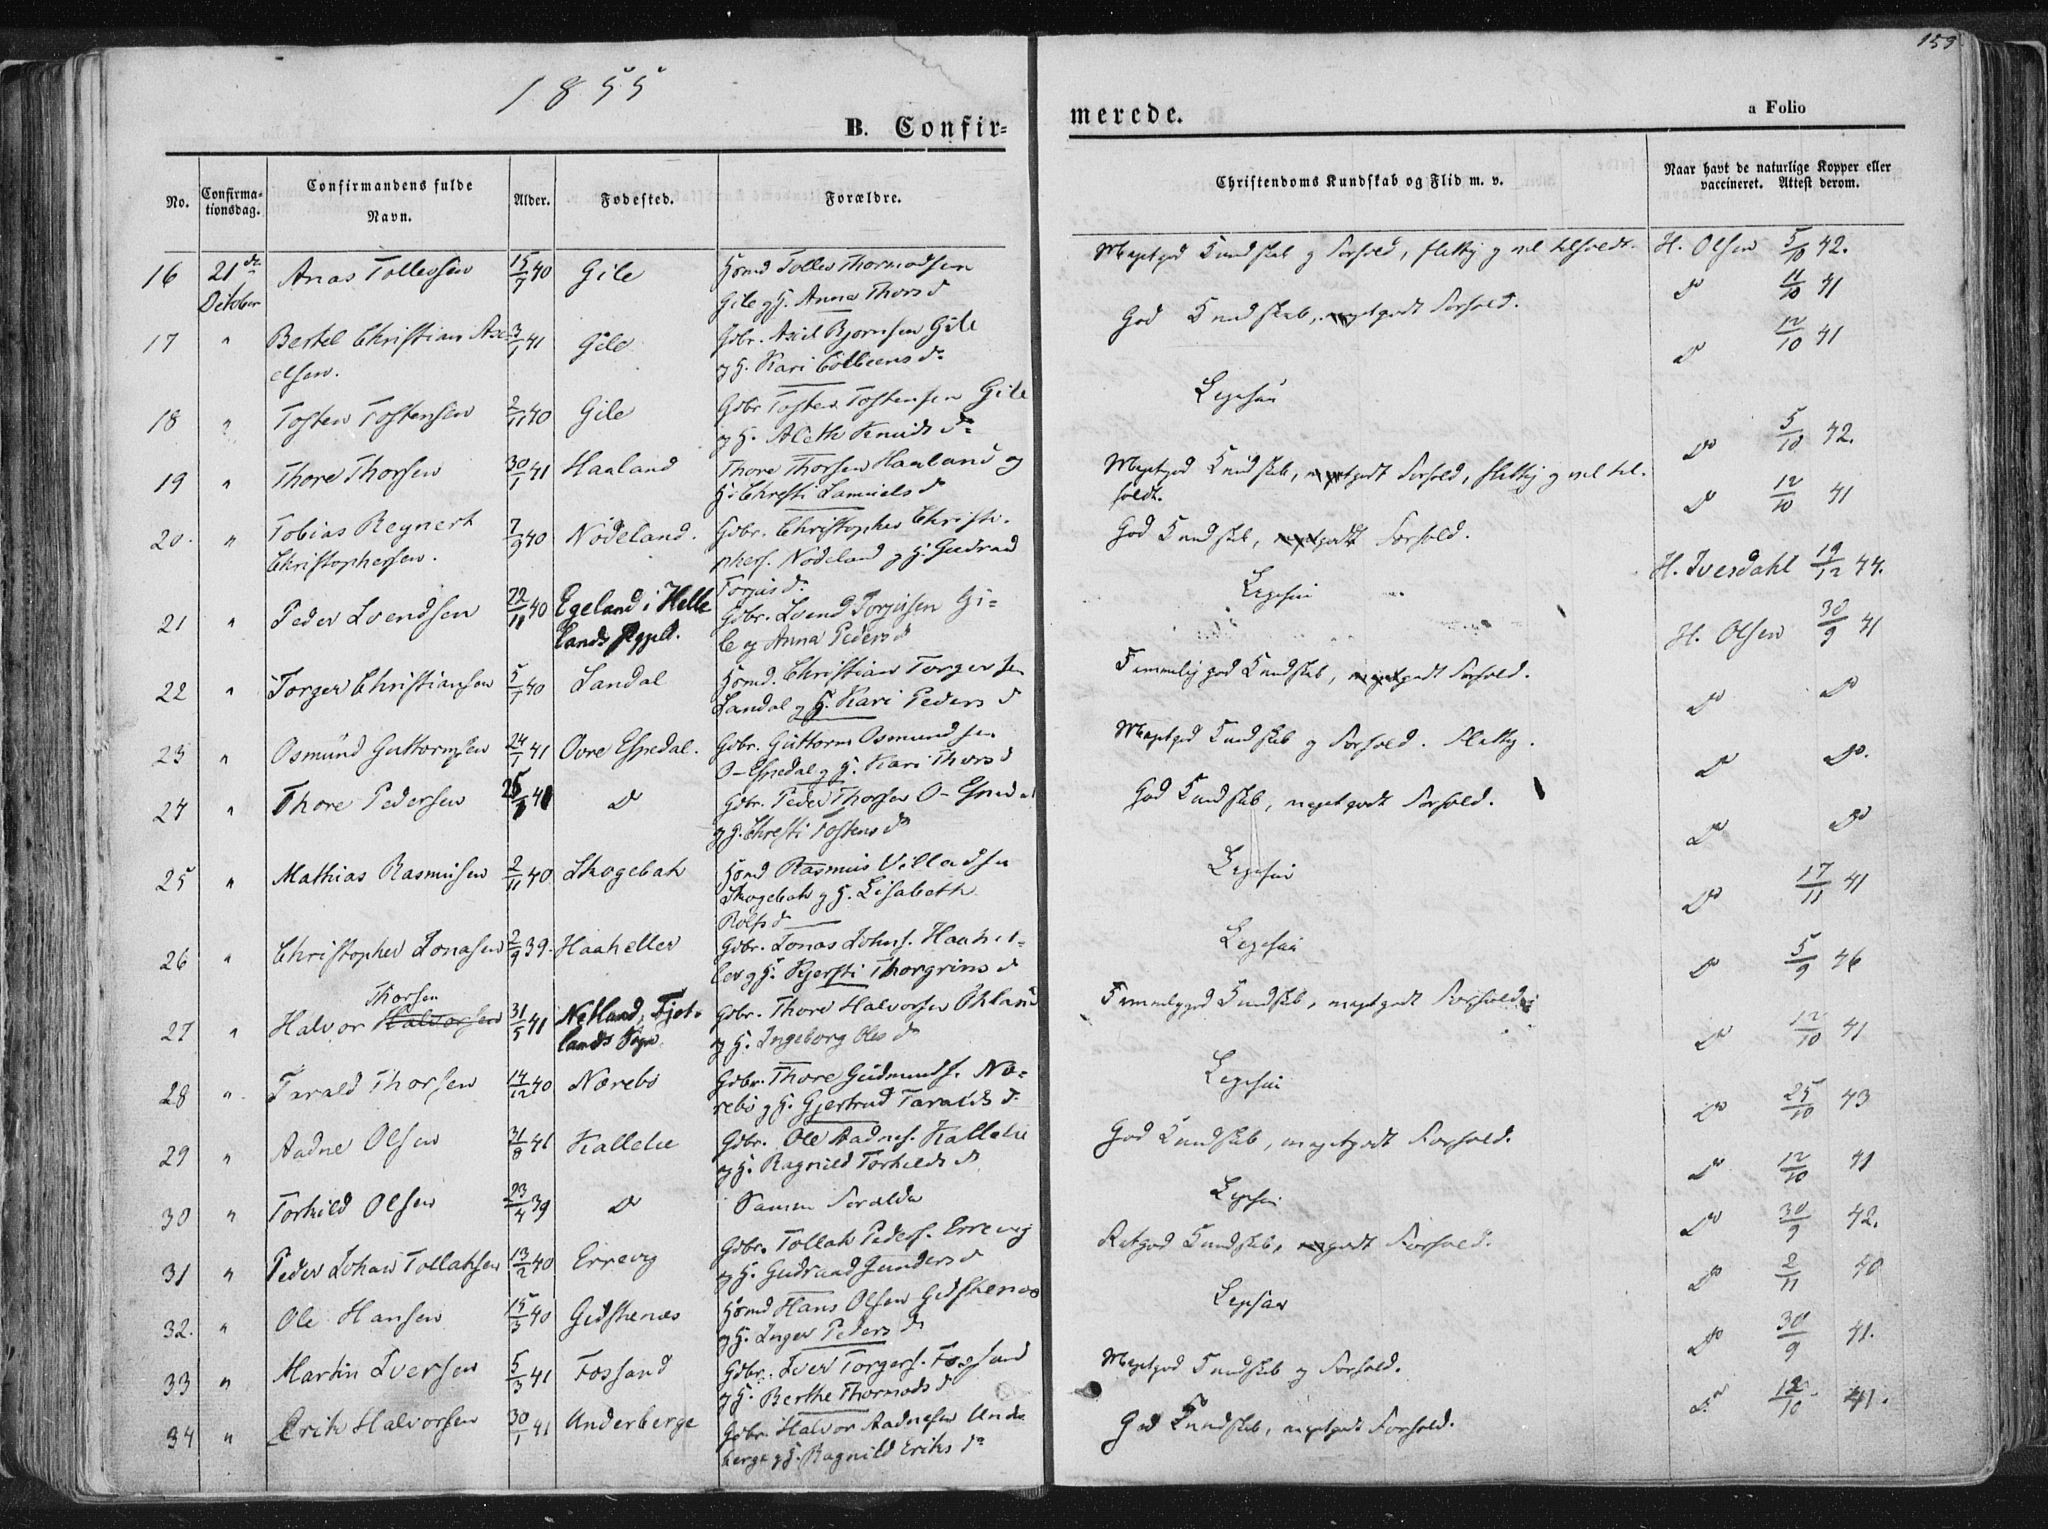 1855
153
B. Confir=
merede.
a Folio
No.
Confirma-
tionsdag.
Confirmandens fulde
Navn.
Alder.
Fødested.
Forældre.
Christendoms Kundskab og Flid m. v.
Naar havt de naturlige Kopper eller
vaccineret. Attest derom.
16 21de October Anas Tollevsen 15/7 40 Gile Hömd Tollev Thormodsen
Gile og H. Anna Thors D
Megetgod Kundskab og Forhold, flittig og vel H. Olsen 5/10 42.
17 " Bertel Christian Ax- 3/1 41 Gile Gdbr. Axel Bjørnsen Gile
elsen. og H. Kari
God Kundskab, megetgodt Forhold. Do 11/10 41
18 " Tosten Tostensen 40 Gile Gdbr Tosten Tostensen Gile
og H. Aleth Knuds D.
Ligesaa Do 12/10 41
19 " Thore Thorsen 30/1 41 Haaland Thore Thorsen Haaland og
H. Christi Samuels D
Megetgod Kundskab, megetgodt Forhold, flittig og vel Do 5/10 42.
20. " Tobias Regnert 7/9 40 Nödeland. Gdbr. Christopher Christo-
Christophersen. phers. Nödeland og H. Gudrad
Torjus D.
God Kundskab, megetgodt Forhold. Do 12/10 41
21 " Peder Svendsen 22/11 40 Egeland i Helle
lands Gdbr. Svend Torjusen Gi=
le og Anna Peders D
Ligesaa H. Ivesdahl 19/12 44.
22 " Torger Christiansen 5/7 40 Sandal Hömd. Christian Torgersen
Sandal og H. Kari Peders D
Temmelig god Kundskab, megetgodt Forhold. H. Olsen 30/9 41
23 " Osmund Guttormsen 24/1 41 Ovre Espedal. Gdbr. Guttorm Osmundsen
O-Espedal og H. Kari Thors D
Megetgod Kundskab og Forhold. Flittig. Do Do
24 " Thore Pedersen 41 Do Gdbr. Peder Thorsen O-Espedal
og H. Christi Tostens D
God Kundskab, megetgodt Forhold. Do Do.
25 " Mathias Rasmusen 2/11 40 Skogebak Hömd Rasmus Villadsen
Skogebak og H. Lisabeth
Rolfs D
Ligesaa Do Do
26 " Christopher Jonasen 2/9 39. Haaheller Gdbr. Jonas Johns. Haahel-
ler og H. Kjersti Thorgrims D
Ligesaa Do 17/11 41
Thorsen
27 " Halvor Halvorsen 31/5 41 Netland, Fjot-
lands Sogn. Gdbr. Thore Halvorsen
og H. Ingeborg Oles D
Temmeliggod Kundskab, megetgodt Forhold. Do 5/9 46
28 " Tarald Thorsen 14/12 40 Nærebö Gdbr. Thore Gudmunds. Næ-
rebö og H. Gjertrud Taralds D.
Ligesaa Do 12/10 41
29 " Aadne Olsen 41 Kallelie Gdbr. Ole Aadnes. Kallelie
og H. Ragnild Torkilds D
God Kundskab, megetgodt Forhold. Do 25/10 43
30 " Torkild Olsen 23/4 39 Do Samme Forældre
Ligesaa Do 12/10 41
31 " Peder Johan Tollaksen 13/2 40 Errevig Gdbr. Tollak Peders. Errevig
og H. Gudrand Gunders D
Retgod Kundskab, godt Forhold. Do 30/9 42.
32. " Ole Hansen 15/3 40 Geidskenæs Hömd Hans Olsen Geidskenæs
og H. Inger Peders D
Ligesaa Do 2/11 40
33 " Martin Iversen 5/3 41 Fossand Gdbr. Iver Torgers. Fossand
og H. Berthe Thormods D
Megetgod Kundskab og Forhold. Do 30/9 41.
34 " Erik Halvorsen 30/1 41 Underberge Gdbr. Halvor Aadnesen Under
berge og H. Ragnild Eriks D
God Kundskab, megetgodt Forhold. Do 12/10 41.